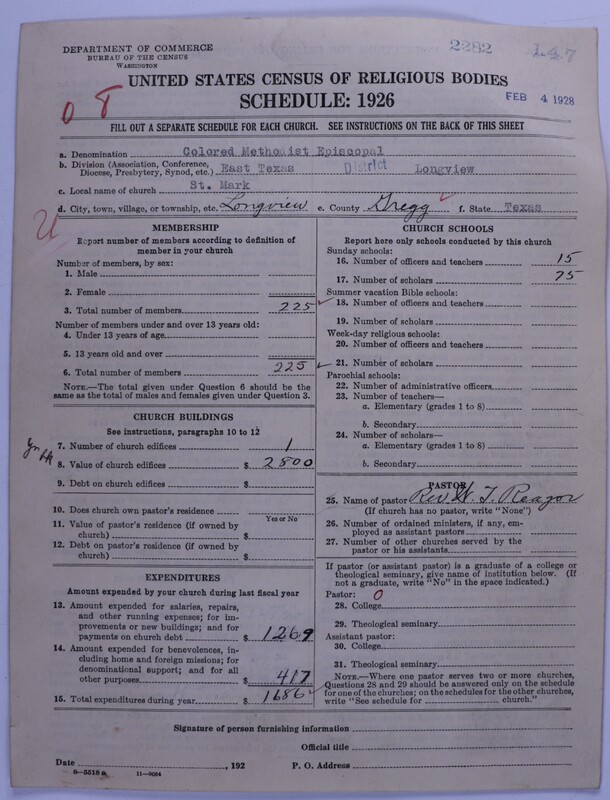 DEPARTMENT OF COMMERCE
BUREAU OF THE CENSUS
WASHINGTON
2282
147
UNITED STATES CENSUS OF RELIGIOUS BODIES
SCHEDULE: 1926
FEB 4 1928
FILL OUT A SEPARATE SCHEDULE FOR EACH CHURCH. SEE INSTRUCTIONS ON THE BACK OF THIS SHEET
a. Denomination Colored Methodist Episcopal
b. Division (Association, Conference, Diocese, Presbytery, Synod, etc.) East Texas District Longview
c. Local name of church St. Mark
d. City, town, village, or township, etc. Longview e. County Gregg f. State Texas
MEMBERSHIP
Report number of members according to definition of
member in your church
Number of members, by sex:
1. Male
2. Female
3. Total number of members 225
Number of members under and over 13 years old:
4. Under 13 years of age
5. 13 years old and over
6. Total number of members 225
NOTE.—The total given under Question 6 should be
same as the total of males and females given under Question 3.
CHURCH BUILDINGS
See instructions, paragraphs 10 to 12
7. Number of church edifices 1
8. Value of church edifices $ 2800
9. Debt on church edifices $
10. Does church own pastor's residence
Yes or No
11. Value of pastor's residence (if owned by
church) $
12. Debt on pastor's residence (if owned by
church) $
EXPENDITURES
Amount expended by your church during last fiscal year
13. Amount expended for salaries, repairs,
and other running expenses; for im-
provements or new buildings; and for
payments on church debt $ 1269
14. Amount expended for benevolences, in-
cluding home and foreign missions; for
denominational support; and for all
other purposes $ 417
15. Total expenditures during year $ 1686
CHURCH SCHOOLS
Report here only schools conducted by this church
Sunday schools:
16. Number of officers and teachers 15
17. Number of scholars 75
Summer vacation Bible schools:
18. Number of officers and teachers
19. Number of scholars
Week-day religious schools:
20. Number of officers and teachers
21. Number of scholars
Parochial schools:
22. Number of administrative officers
23. Number of teachers—
a. Elementary (grades 1 to 8)
b. Secondary
24. Number of scholars—
a. Elementary (grades 1 to 8)
b. Secondary
PASTOR
25. Name of pastor Rev. W. T. Reagor
(If church has no pastor, write "None")
26. Number of ordained ministers, if any, em-
ployed as assistant pastors
27. Number of other churches served by the
pastor or his assistants
If pastor (or assistant pastor) is a graduate of a college or
theological seminary, give name of institution below. (If
not a graduate, write "No" in the space indicated.)
Pastor: 0
28. College
29. Theological seminary
Assistant pastor:
30. College
31. Theological seminary
NOTE.—Where one pastor serves two or more churches,
Questions 28 and 29 should be answered only on the schedule
for one of the churches; on the schedules for the other churches,
write "See schedule for church."
Signature of person furnishing information
Official title
Date , 192 P. O. Address
8—5518 a 11—9064